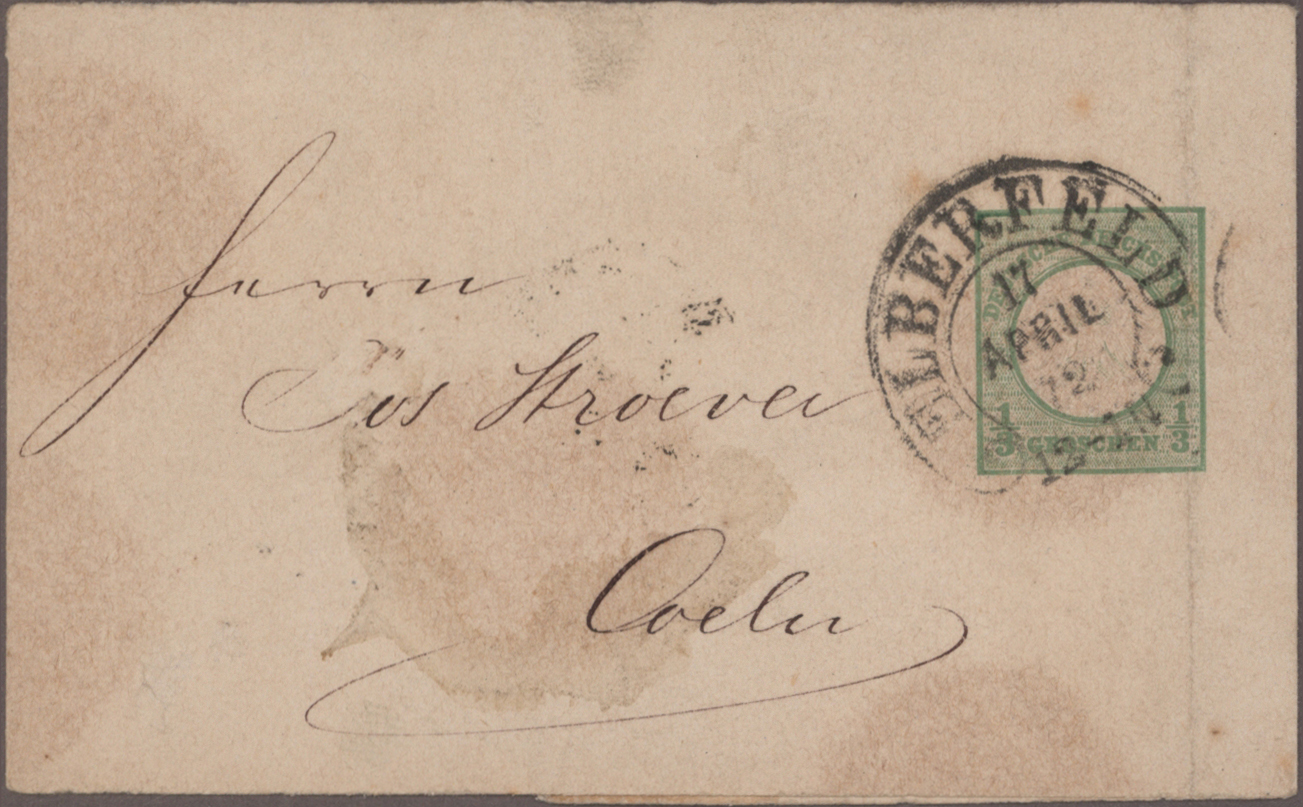 Herrn
Jos Stroever
Coeln
ELBERFELD
17
APRIL
72
12-1N
DEUTSCHE REICHS
1/3 GROSCHEN 1/3